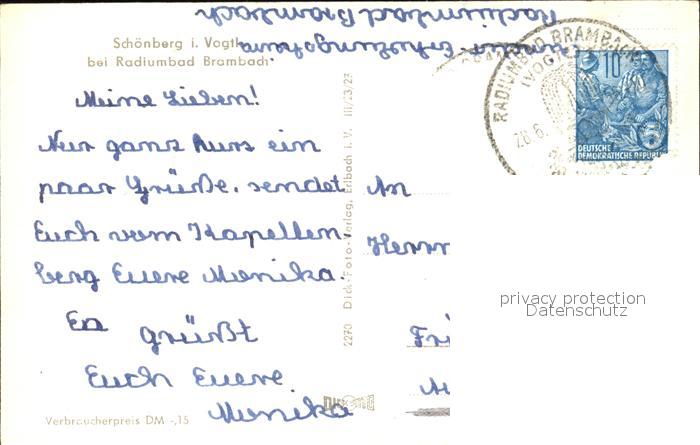 Schönberg i. Vogtl
bei Radiumbad Brambach
Radiumbad Brambach
Meine Lieben!
Nur ganz kurs ein
paar Grüße. sendet
Euch vom Kapellen-
berg Euere Monika.
Es grüßt
Euch Euere
Monika
Verbraucherpreis DM -,15
2270 Dick-Foto-Verlag, Erlbach i. V. III/13/27
RADIUMBAD BRAMBACH
(VOGTL)
28.6.
10
5
DEUTSCHE
DEMOKRATISCHE REPUBLIK
An
Herrn
Fri
privacy protection
Datenschutz